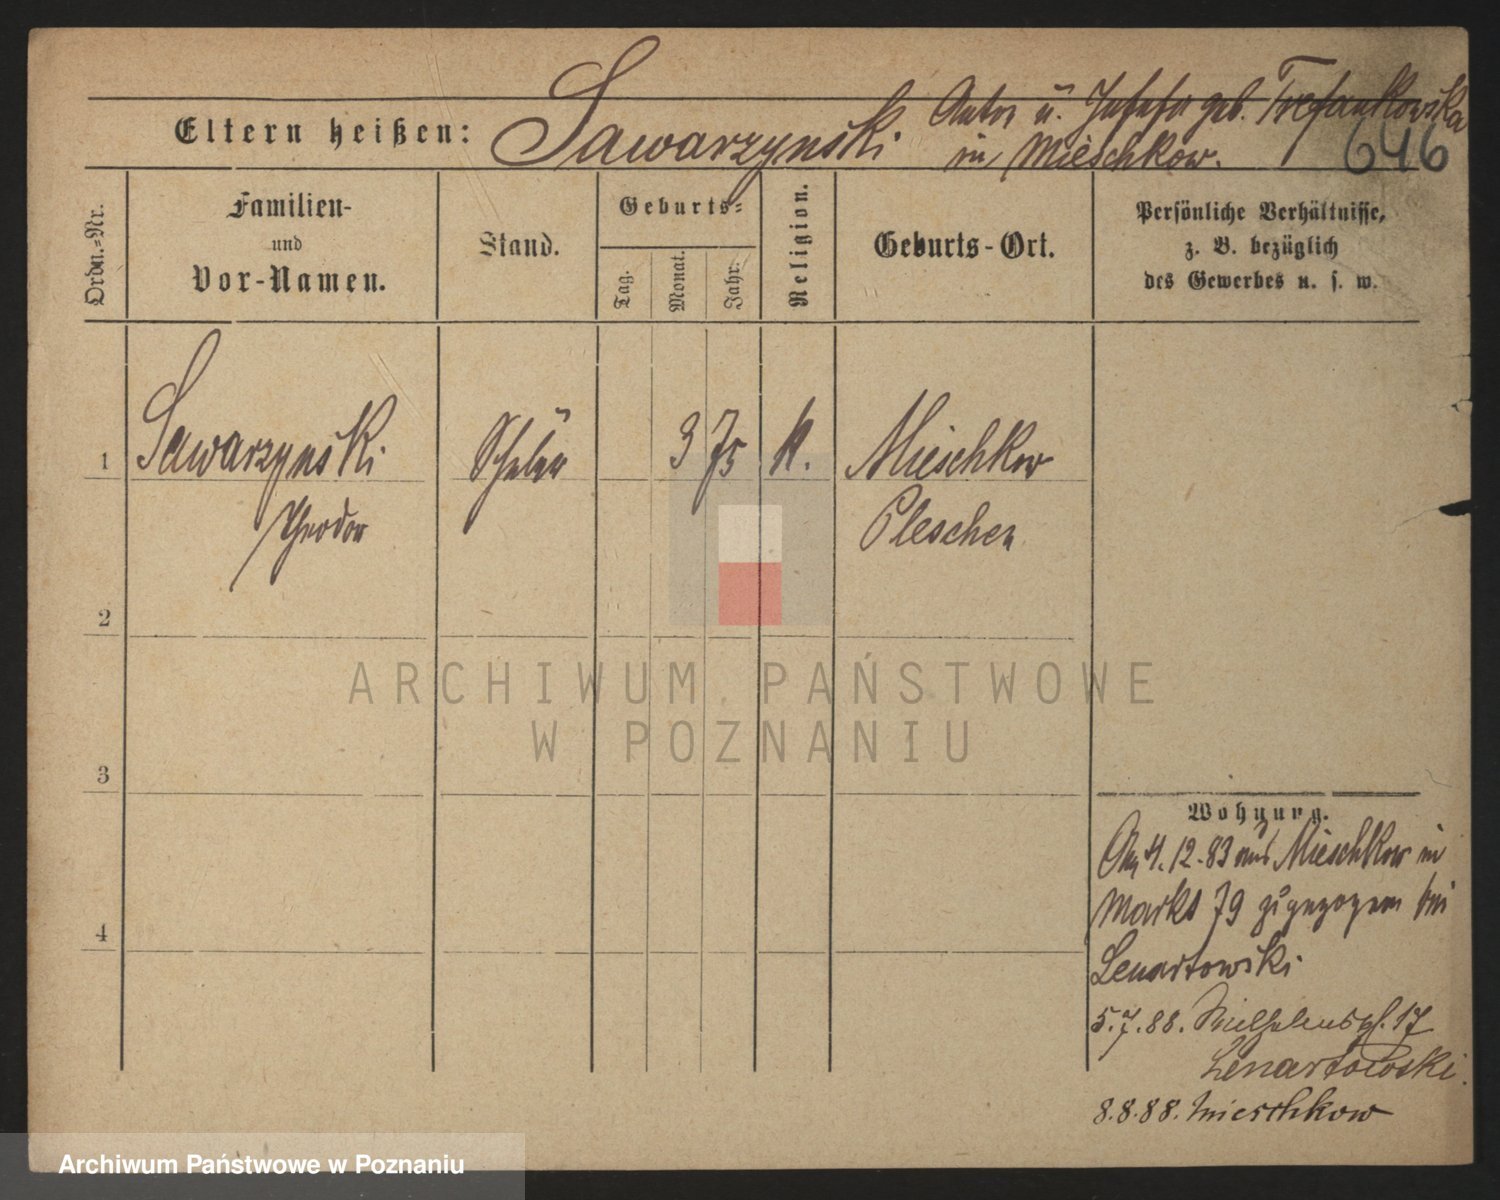 Eltern heißen: Sawarzynski Anton u. Josefa geb. Trefankowska
in Mieschkow.
646
Ordn.=Nr.
Familien-
und
Vor-Namen.
Stand.
Geburts=
Tag.
Monat.
Jahr.
Religion.
Geburts-Ort.
Persönliche Verhältnisse,
z. B. bezüglich
des Gewerbes u. s. w.
1 Sawarzynski Schüler 3 75 k. Mieschkow
Theodor Pleschen
2
3
4
Wohnung.
Am 4.12.83 aus Mieschkow in
Markt 79 zugezogen bei
Lenartowski
5.7.88. Wilhelmspl. 17
Lenartowski.
8.8.88. Mieschkow
ARCHIWUM PAŃSTWOWE
W POZNANIU
Archiwum Państwowe w Poznaniu